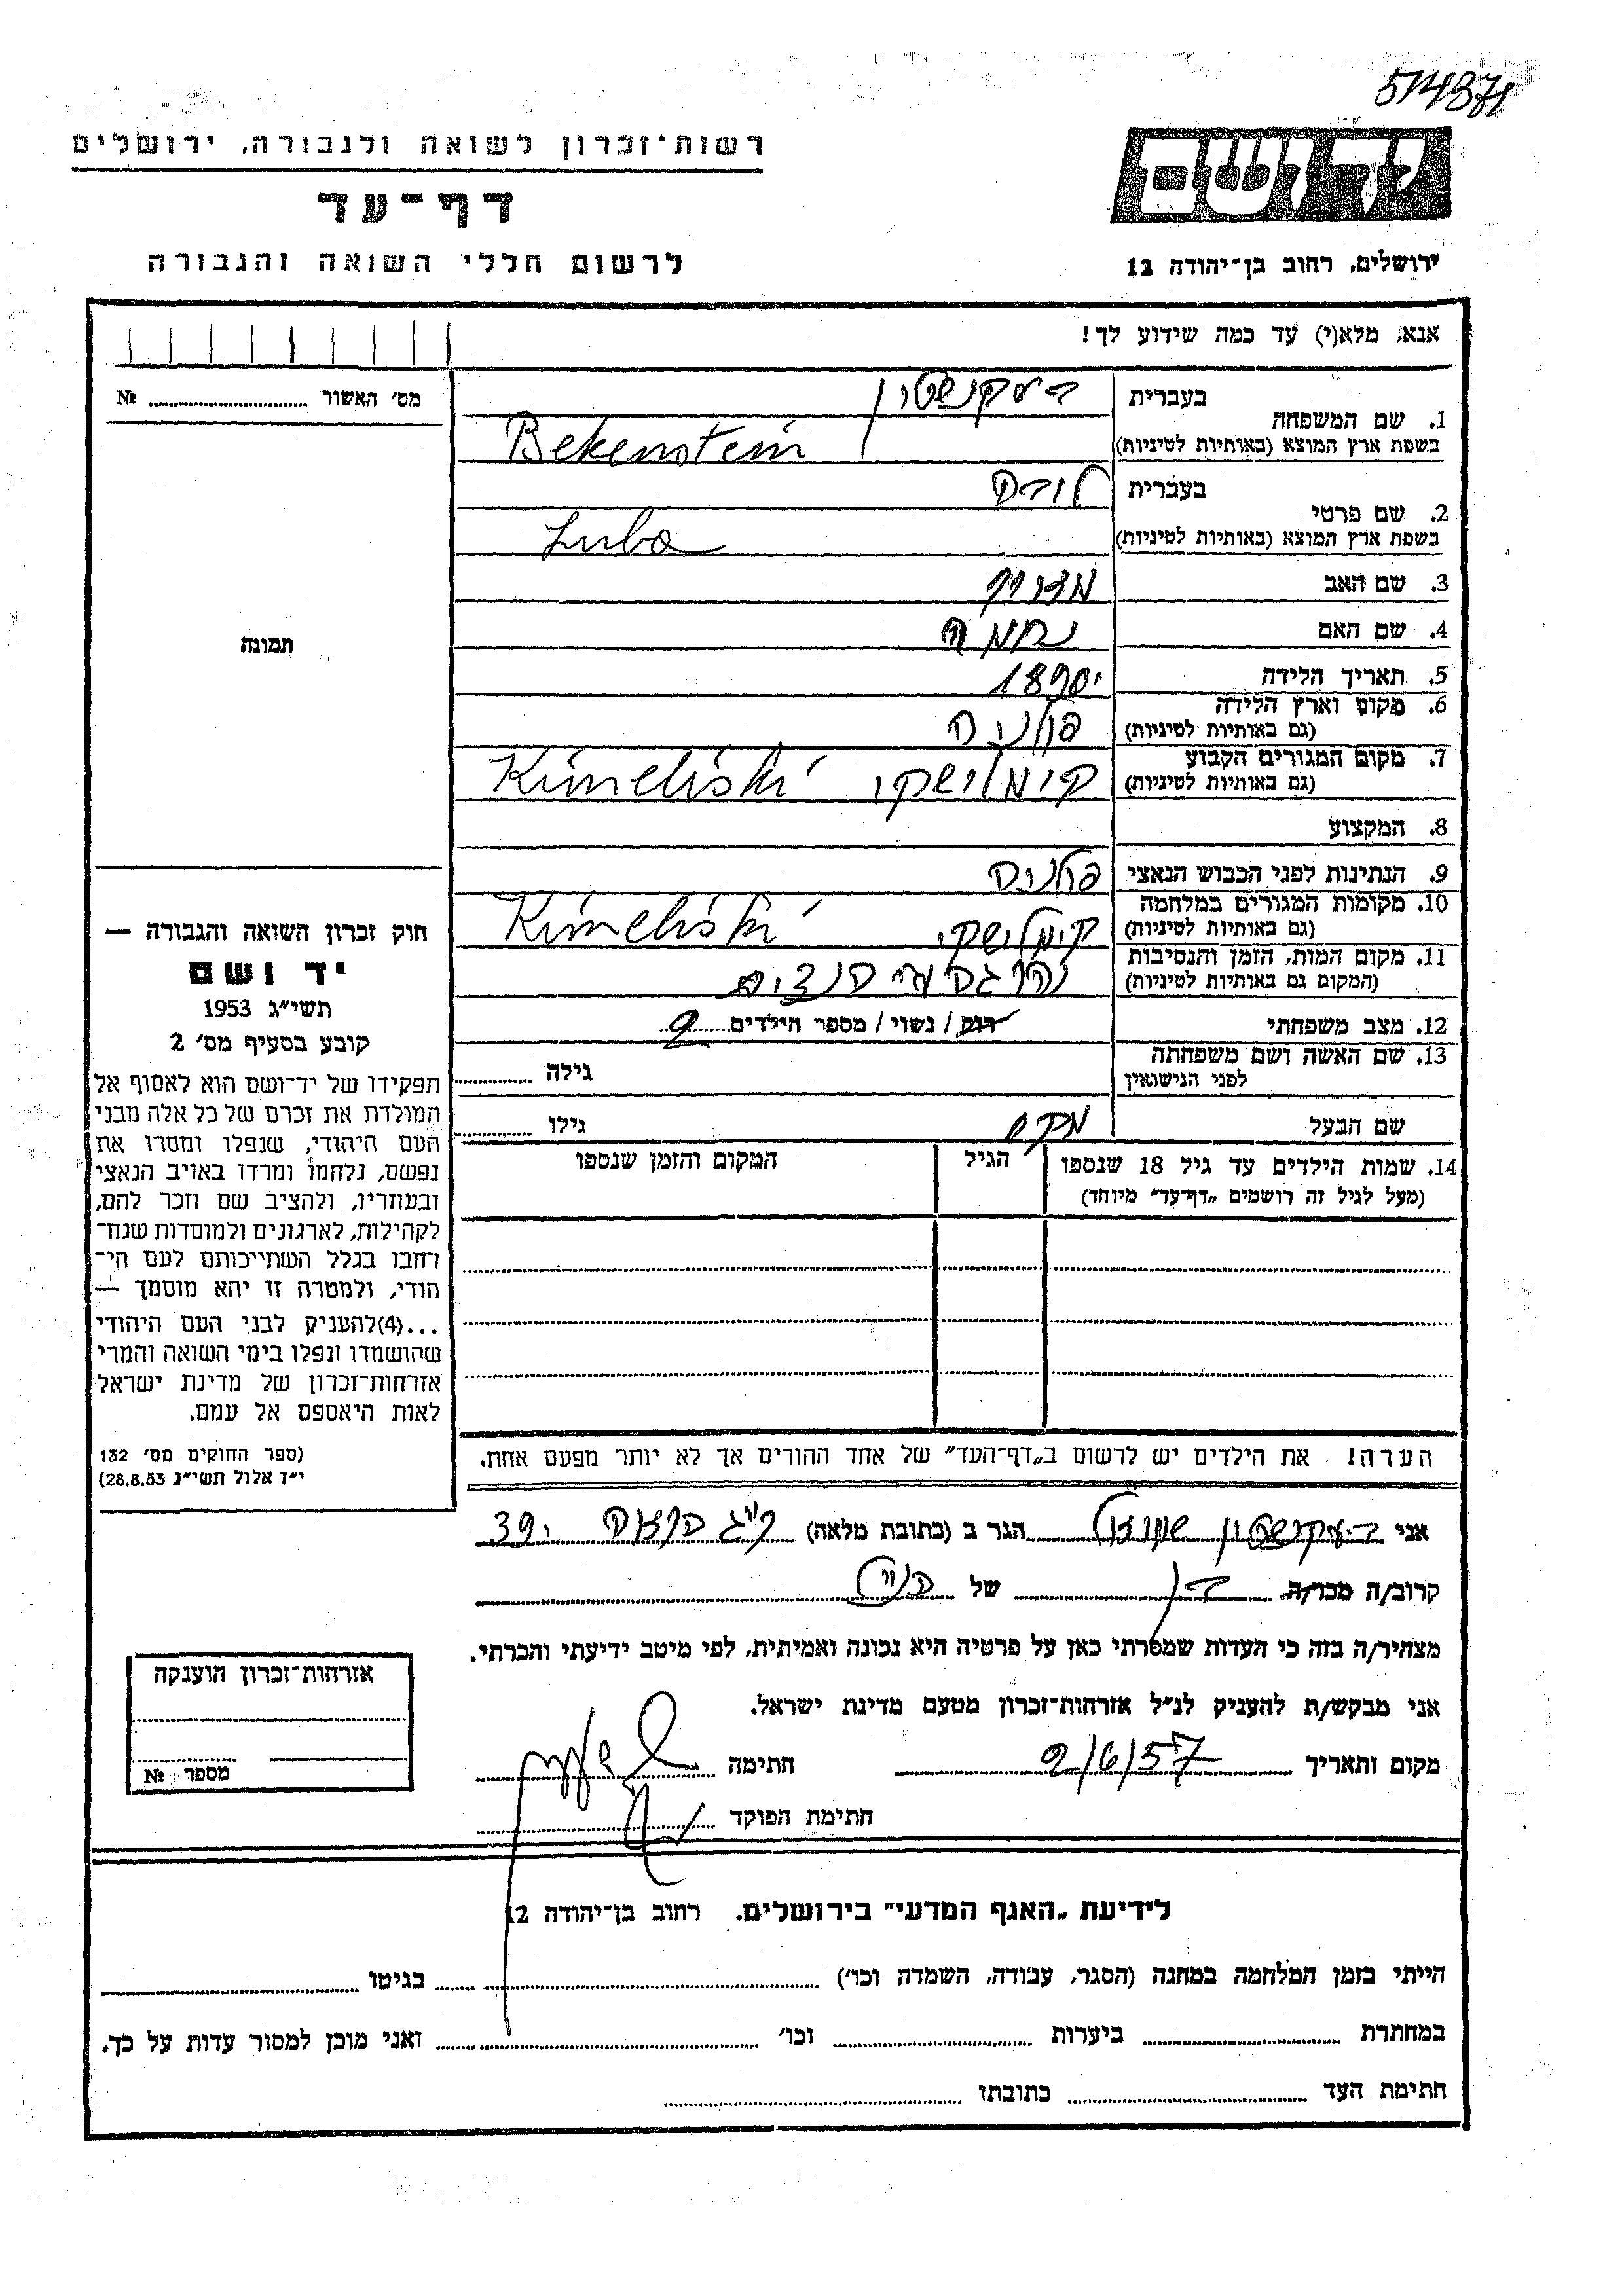 514871
יד ושם
רשות־זכרון לשואה ולגבורה, ירושלים
דף־עד
לרשום חללי השואה והגבורה
ירושלים, רחוב בן־יהודה 12
אנא, מלא(י) עד כמה שידוע לך!
מס׳ האשור № ........
בעברית
בעקנשטין
1. שם המשפחה
בשפת ארץ המוצא (באותיות לטיניות)
Bekenstein
בעברית
לובה
2. שם פרטי
בשפת ארץ המוצא (באותיות לטיניות)
Luba
3. שם האב
4. שם האם נחמה
5. תאריך הלידה 1890
6. מקום וארץ הלידה
(גם באותיות לטיניות)
פולניה
7. מקום המגורים הקבוע
(גם באותיות לטיניות)
קימלישקי Kimeliśki
8. המקצוע
9. הנתינות לפני הכבוש הנאצי פולניה
10. מקומות המגורים במלחמה
(גם באותיות לטיניות)
קימלישקי Kimeliśki
11. מקום המות, הזמן והנסיבות
(המקום גם באותיות לטיניות)
נהרגה ע״י הנצים
12. מצב משפחתי רוק / נשוי / מספר הילדים 2
13. שם האשה ושם משפחתה
לפני הנישואין
גילה ........
שם הבעל
גילו ........
14. שמות הילדים עד גיל 18 שנספו
(מעל לגיל זה רושמים „דף־עד״ מיוחד)
הגיל
המקום והזמן שנספו
תמונה
חוק זכרון השואה והגבורה —
יד ושם
תשי״ג 1953
קובע בסעיף מס׳ 2
תפקידו של יד־ושם הוא לאסוף אל
המולדת את זכרם של כל אלה מבני
העם היהודי, שנפלו ומסרו את
נפשם, נלחמו ומרדו באויב הנאצי
ובעוזריו, ולהציב שם וזכר להם,
לקהילות, לארגונים ולמוסדות שנח־
רחבו בגלל השתייכותם לעם הי־
הודי, ולמטרה זו יהא מוסמך —
...(4)להעניק לבני העם היהודי
שהושמדו ונפלו בימי השואה והמרי
אזרחות־זכרון של מדינת ישראל
לאות היאספם אל עמם.
(ספר החוקים מס׳ 132
י״ז אלול תשי״ג 28.8.53)
הערה! את הילדים יש לרשום ב„דף־העד״ של אחד ההורים אך לא יותר מפעם אחת.
אני בעקנשטין שמואל הגר ב (כתובת מלאה) 39
קרוב/ה מכר/ה בן של הנ״ל
מצהיר/ה בזה כי העדות שמסרתי כאן על פרטיה היא נכונה ואמיתית, לפי מיטב ידיעתי והכרתי.
אני מבקש/ת להעניק לנ״ל אזרחות־זכרון מטעם מדינת ישראל.
מקום ותאריך 2/6/57 חתימה
חתימת הפוקד
אזרחות־זכרון הוענקה
מספר №
לידיעת „האגף המדעי״ בירושלים. רחוב בן־יהודה 12
הייתי בזמן המלחמה במחנה (הסגר, עבודה, השמדה וכו׳) ........ בגיטו ........
במחתרת ........ ביערות ........ וכו׳ ........ ואני מוכן למסור עדות על כך.
חתימת העד ........ כתובתו ........